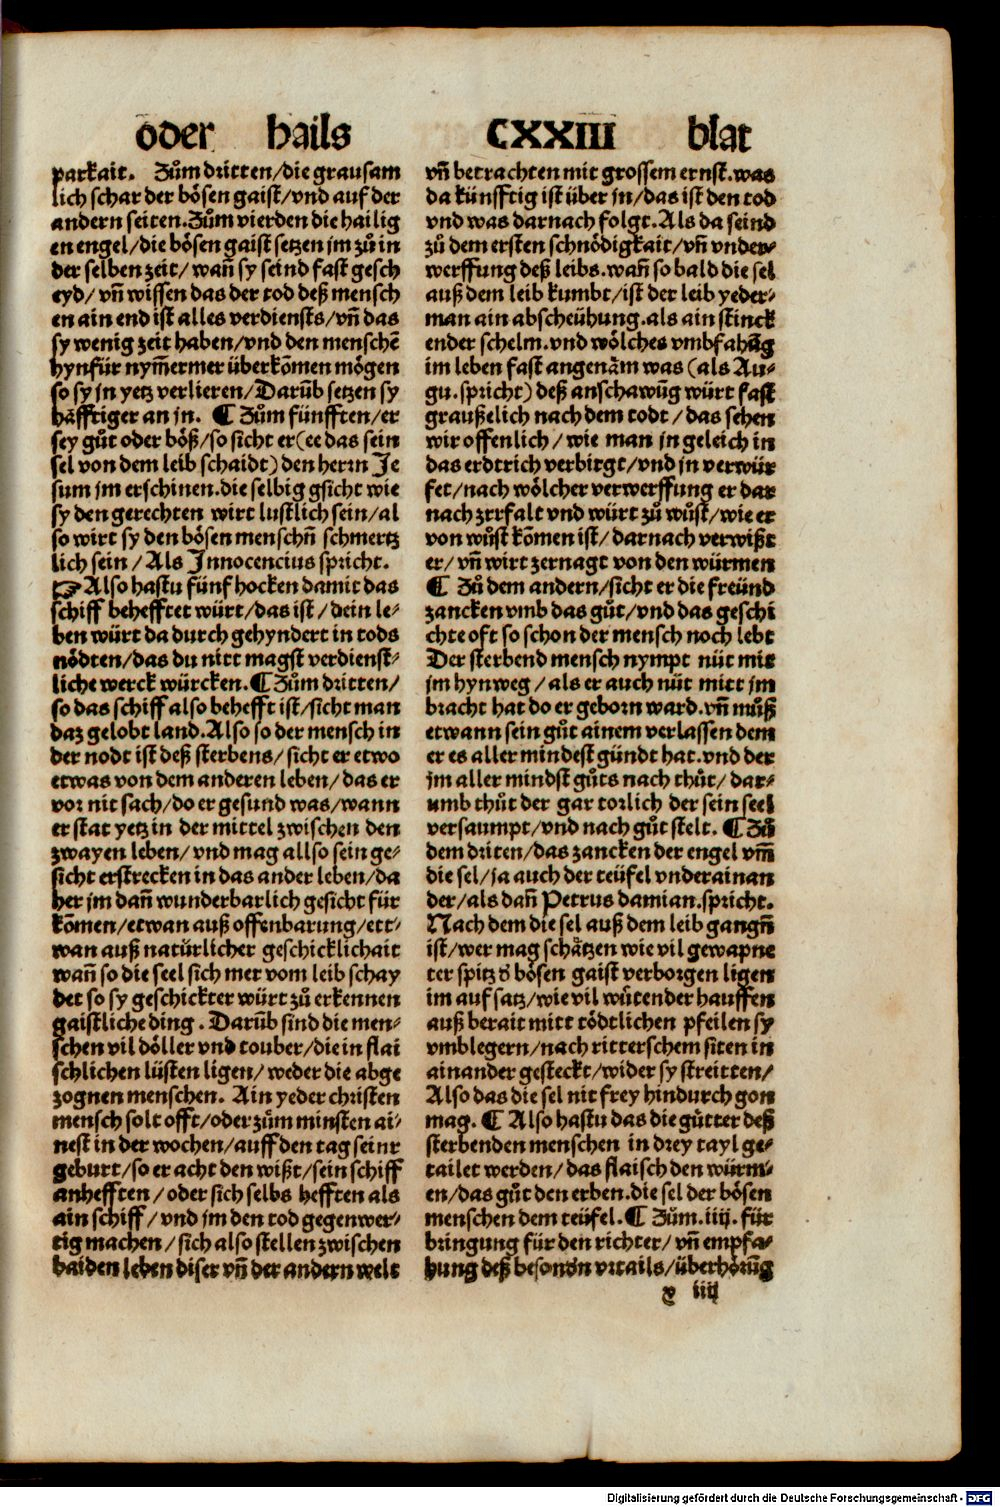 oder hails CXXIII blat
parkait. Zům dritten/die grausam
lich schar der bösen gaist/vnd auf der
andern seiten. Zům vierden die hailig
en engel/die bösen gaist setzen jm zů in
der selben zeit/wañ sy seind fast gesch
eyd/vñ wissen das der tod deß mensch
en ain end ist alles verdiensts/vñ das
sy wenig zeit haben/vnd den menschē
hynfür nym̄ermer überkōmen mögen
so sy jn yetz verlieren/Darūb setzen sy
häfftiger an jn. ¶ Zům fünfften/er
sey gůt oder böß/so sicht er(ee das sein
sel von dem leib schaidt)den herrn Je
sum jm erschinen.die selbig gsicht wie
sy den gerechten wirt lustlich sein/al
so wirt sy den bösen menschñ schmertz
lich sein/Als Innocencius spricht.
☞Also hastu fünf hocken damit das
schiff behefftet würt/das ist/dein le⸗
ben würt da durch gehyndert in tods
nödten/das du nitt magst verdienst⸗
liche werck würcken.¶Zům dritten/
so das schiff also behefft ist/sicht man
daz gelobt land.Also so der mensch in
der nodt ist deß sterbens/sicht er etwo
etwas von dem anderen leben/das er
vor nit sach/do er gesund was/wann
er stat yetz in der mittel zwischen den
zwayen leben/vnd mag allso sein ge⸗
sicht erstrecken in das ander leben/da
her jm dañ wunderbarlich gesicht für
kōmen/etwan auß offenbarung/ett⸗
wan auß natürlicher geschicklichait
wañ so die seel sich mer vom leib schay
det so sy geschickter würt zů erkennen
gaistliche ding. Darūb sind die men⸗
schen vil döller vnd touber/die in flai
schlichen lüsten ligen/weder die abge
zognen menschen. Ain yeder christen
mensch solt offt/oder zům minsten ai⸗
nest in der wochen/auff den tag seinr
geburt/so er acht den wißt/sein schiff
anhefften/oder sich selbs hefften als
ain schiff/vnd jm den tod gegenwer⸗
tig machen/sich also stellen zwischen
baiden leben diser vñ der andern welt
vñ betrachten mit grossem ernst.was
da künfftig ist über jn/das ist den tod
vnd was darnach folgt.Als da seind
zů dem ersten schnödigkait/vñ vnder⸗
werffung deß leibs.wañ so bald die sel
auß dem leib kumbt/ist der leib yeder⸗
man ain abscheühung.als ain stinck
ender schelm.vnd wölches vmbfahūg
im leben fast angenäm was(als Au⸗
gu.spricht)deß anschawūg würt fast
graußelich nach dem todt/das sehen
wir offenlich/wie man jn geleich in
das erdtrich verbirgt/vnd jn verwür
fet/nach wölcher verwerffung er dar
nach zrrfalt vnd würt zů wůst/wie er
von wůst kōmen ist/darnach verwißt
er/vñ wirt zernagt von den würmen
¶ Zů dem andern/sicht er die freünd
zancken vmb das gůt/vnd das geschi
chte oft so schon der mensch noch lebt
Der sterbend mensch nympt nüt mit
jm hynweg/als er auch nüt mitt jm
bracht hat do er geborn ward.vñ můß
etwann sein gůt ainem verlassen dem
er es aller mindest gündt hat.vnd der
jm aller mindst gůts nach thůt/dar⸗
umb thůt der gar torlich der sein seel
versaumpt/vnd nach gůt stelt. ¶Zů
dem driten/das zancken der engel vm̄
die sel/ja auch der teüfel vnderainan
der/als dañ Petrus damian.spricht.
Nach dem die sel auß dem leib gangñ
ist/wer mag schätzen wie vil gewapne
ter spitz d̕ bösen gaist verborgen ligen
im auf satz/wie vil wůtender hauffen
auß berait mitt tödtlichen pfeilen sy
vmblegern/nach ritterschem siten in
ainander gesteckt/wider sy streitten/
Also das die sel nit frey hindurch gon
mag. ¶ Also hastu das die gůtter deß
sterbenden menschen in drey tayl ge⸗
tailet werden/das flaisch den würm⸗
en/das gůt den erben.die sel der bösen
menschen dem teüfel.¶ Zům.iiij.für
bringung für den richter/vñ empfa⸗
hung deß besond̕n vrtails/überhörūg
x iiij
Digitalisierung gefördert durch die Deutsche Forschungsgemeinschaft - DFG